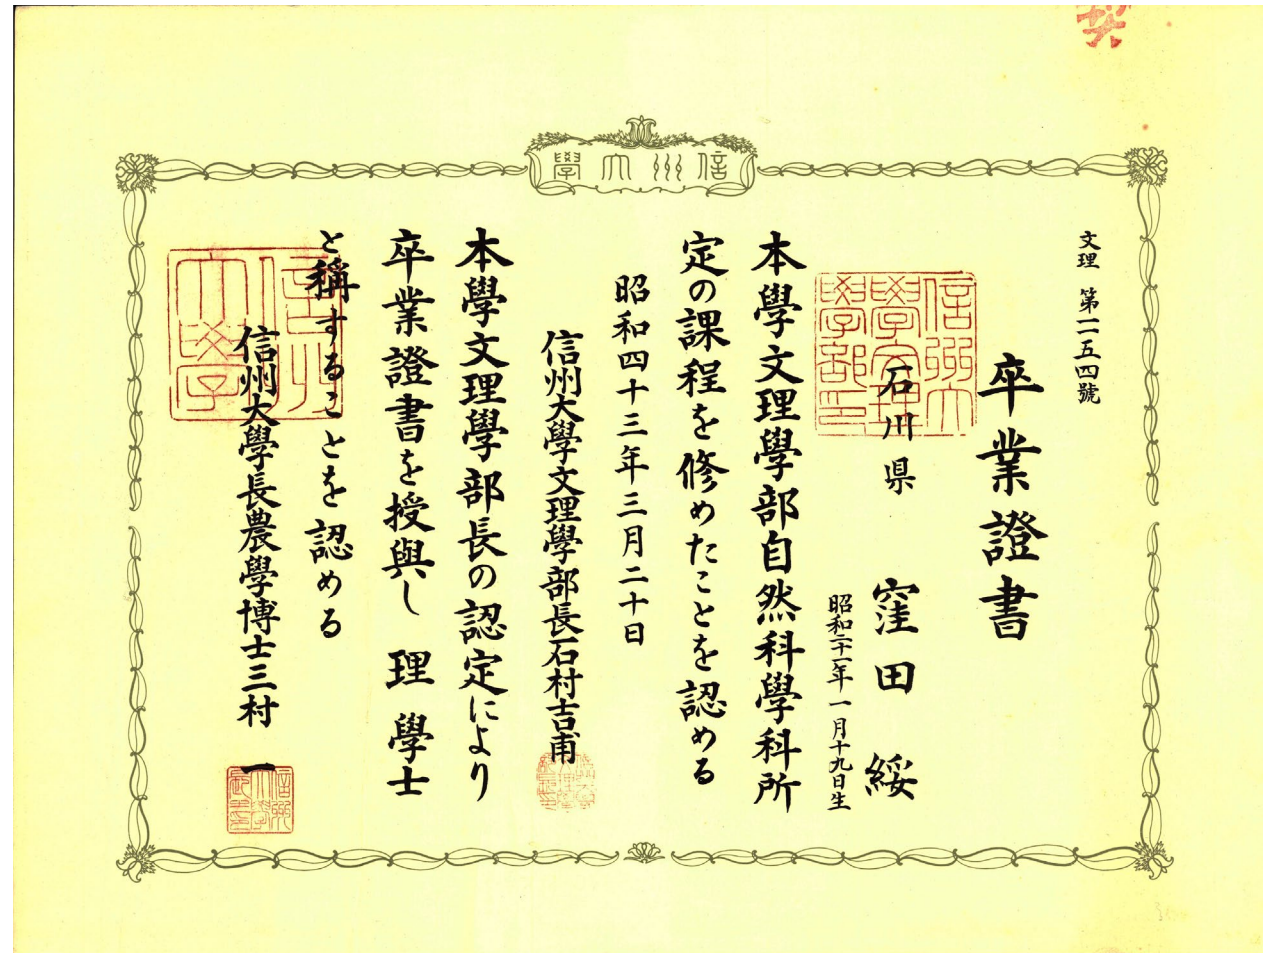 信州大學
文理 第一一五四號
卒業證書
石川県 窪田 綏
昭和二十一年一月十九日生
本學文理學部自然科學科所
定の課程を修めたことを認める
昭和四十三年三月二十日
信州大學文理學部長石村吉甫
本學文理學部長の認定により
卒業證書を授與し 理學士
と稱することを認める
信州大學長農學博士三村 一
信州大學文理學部印
信州大學